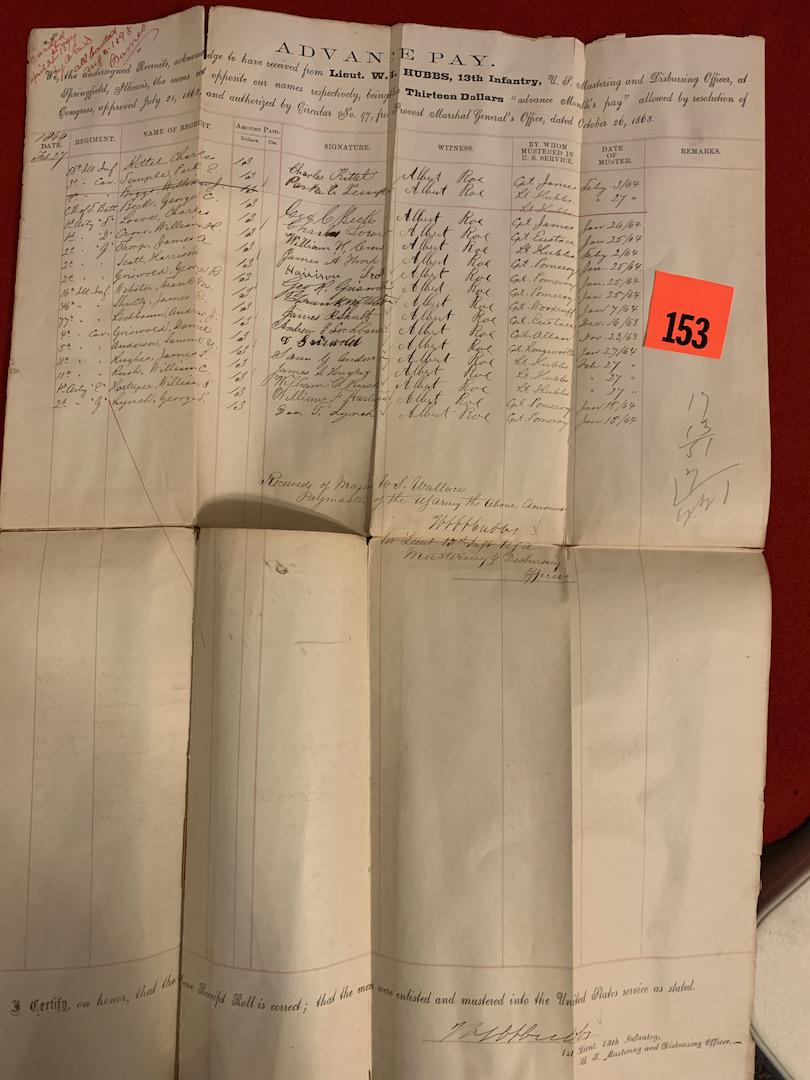 ADVANCE PAY.
We, the undersigned Recruits, acknowledge to have received from Lieut. W. HUBBS, 13th Infantry, U. S. Mustering and Disbursing Officer, at
Springfield, Illinois, the sums set opposite our names respectively, being the Thirteen Dollars "advance Month's pay" allowed by resolution of
Congress, approved July 21, 186 and authorized by Circular No. 97, from Provost Marshal General's Office, dated October 26, 1863.
1864
DATE. REGIMENT. NAME OF RECRUIT. AMOUNT PAID. Dollars Cts. SIGNATURE. WITNESS. BY WHOM MUSTERED IN U. S. SERVICE. DATE OF MUSTER. REMARKS.
Feby 27 Ill. Inf. Kittel, Charles 13 Charles Kittel Albert Roe Cpt James Feby 3/64
Cav. Temple, Park E. 13 Parke E Temple Albert Roe Lt. Hubbs " 27 "
Biggs William Lt Hubbs
Beck, George C. 13 Geo C Beck Albert Roe Cpt James Jan 26/64
1st Arty Lowe, Charles 13 Charles Lowe Albert Roe Cpt Eustace Jan 25/64
1st " Crow, William H. 13 William H. Crow Albert Roe Lt Hubbs Feby 2/64
2d " Thorp, James A. 13 James A Thorp Albert Roe Cpt. Pomeroy Jan 25/64
2d " Scott, Harrison 13 Harrison Albert Roe Cpt. Pomeroy Jan. 25/64
2d " Griswold, George R 13 Geo R. Albert Roe Cpt. Pomeroy Jan 25/64
16th Ill. Inf. Webster, Frank M. 13 Frank M Albert Roe Cpt. Woodruff Jan 7/64
46th " Shults, James 13 James Shults Albert Roe Cpt. Eustace Dec. 16/63
77th " Lochbaum, Andrew J. 13 Andrew J Lochbaum Albert Roe Cpt. Allan Nov. 23/63
4th Cav. Griswold, Daniel 13 D Griswold Albert Roe Cpt. Jan 27/64
5th " Anderson, Samuel Y. 13 Sam Y Albert Roe Lt. Hubbs Feb 27 "
11th " Hughes, James S. 13 James S Hughes Albert Roe Lt. Hubbs " 27 "
11th " Rush, William C. 13 William C Rush Albert Roe Lt Hubbs " 27 "
1st Arty William 13 William Albert Roe Cpt. Pomeroy Jan 18/64
2d " Lynch, George T. 13 Geo. T. Lynch Albert Roe Cpt. Pomeroy Jan 18/64
153
17
13
51
17
221
Received of Major W. S. Wallace
Paymaster of the US Army the Above Amount
W Hubbs
1st Lieut 13th Infy USA
Mustering & Disbursing
Officer
I Certify, on honor, that the above Receipt Roll is correct; that the men were enlisted and mustered into the United States service as stated.
W Hubbs
1st Lieut. 13th Infantry,
U. S. Mustering and Disbursing Officer.